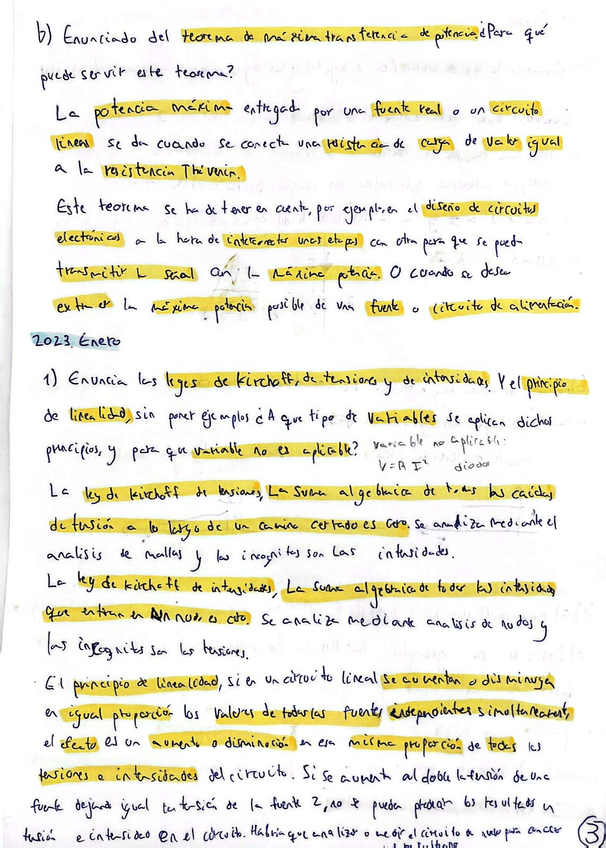 b) Enunciado del teorema de máxima transferencia de potencia ¿Para qué
puede servir este teorema?
La potencia máxima entregada por una fuente real o un circuito
lineal se da cuando se conecta una resistencia de carga de valor igual
a la resistencia Thévenin.
Este teorema se ha de tener en cuenta, por ejemplo, en el diseño de circuitos
electrónicos a la hora de interconectar unas etapas con otra para que se pueda
transmitir la señal con la máxima potencia. O cuando se desea
extraer la máxima potencia posible de una fuente o circuito de alimentación.
2023. Enero
1) Enuncia las leyes de Kirchoff, de tensiones y de intensidades. Y el principio
de linealidad, sin poner ejemplos ¿A que tipo de variables se aplican dichos
principios, y para que variable no es aplicable? variable no aplicable:
V=R I² diodos
La ley de Kirchoff de tensiones, La suma algebraica de todas las caídas
de tensión a lo largo de un camino cerrado es cero. Se analiza mediante el
analisis de mallas y las incognitas son las intensidades.
La ley de Kirchoff de intensidades, La suma algebraica de todas las intensidades
que entran en un nudo es cero. Se analiza mediante analisis de nudos y
las incognitas son las tensiones.
El principio de linealidad, si en un circuito lineal se aumentan o disminuyen
en igual proporción los valores de todas las fuentes independientes simultaneamente,
el efecto es un aumento o disminución en esa misma proporción de todas las
tensiones e intensidades del circuito. Si se aumenta al doble la tensión de una
fuente dejando igual la tensión de la fuente 2, no se pueden predecir los resultados en
tensión e intensidad en el circuito. Habría que analizar o medir el circuito de nuevo para conocer
3